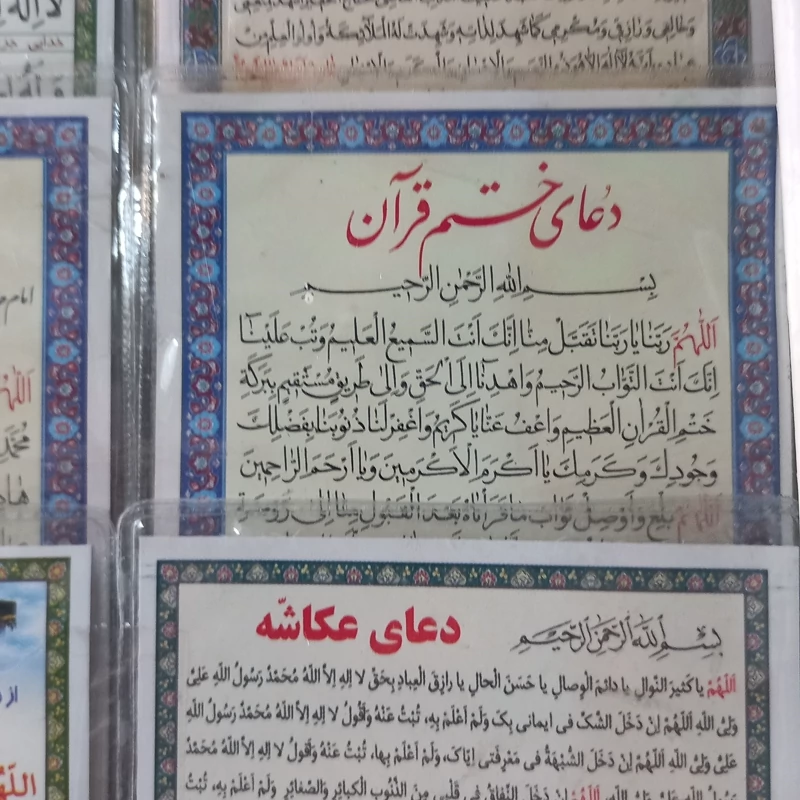 لا اله
وخالقی ورازقی ومکرمی کما شهد لذاته وشهدت له الملائکة واولوا العلم من
دعای ختم قرآن
بِسْمِ اللهِ الرَّحْمٰنِ الرَّحیمِ
اَللّٰهُمَّ رَبَّنا یا رَبَّنا تَقَبَّلْ مِنّا اِنَّکَ اَنْتَ السَّمیعُ الْعَلیمُ وَتُبْ عَلَیْنا
اِنَّکَ اَنْتَ التَّوّابُ الرَّحیمُ وَاهْدِنا اِلَی الْحَقِّ وَاِلی طَریقٍ مُسْتَقیمٍ بِبَرَکَةِ
خَتْمِ الْقُرْانِ الْعَظیمِ وَاعْفُ عَنّا یا کَریمُ وَاغْفِرْ لَنا ذُنُوبَنا بِفَضْلِکَ
وَجُودِکَ وَکَرَمِکَ یا اَکْرَمَ الْاَکْرَمینَ وَیا اَرْحَمَ الرّاحِمینَ
اَللّٰهُمَّ بَلِّغْ وَاَوْصِلْ ثَوابَ ما قَرَأْناهُ بَعْدَ الْقَبُولِ مِنّا اِلی رُوضَةِ
امام
اَللّٰهُ
مُحَمَّد
دعای عکاشّه
بِسْمِ اللهِ الرَّحْمٰنِ الرَّحیمِ
اَللّهُمَّ یا کَثیرَ النَّوالِ یا دائِمَ الْوِصالِ یا حَسَنَ الْحالِ یا رازِقَ الْعِبادِ بِحَقِّ لا اِلهَ اِلاَّ اللهُ مُحَمَّدٌ رَسُولُ اللهِ عَلِیٌّ
وَلِیُّ اللهِ اَللّهُمَّ اِنْ دَخَلَ الشَّکُّ فی ایمانی بِکَ وَلَمْ اَعْلَمْ بِهِ، تُبْتُ عَنْهُ وَاَقُولُ لا اِلهَ اِلاَّ اللهُ مُحَمَّدٌ رَسُولُ اللهِ
عَلِیٌّ وَلِیُّ اللهِ اَللّهُمَّ اِنْ دَخَلَ الشُّبْهَةُ فی مَعْرِفَتی اِیّاکَ، وَلَمْ اَعْلَمْ بِها، تُبْتُ عَنْهُ وَاَقُولُ لا اِلهَ اِلاَّ اللهُ مُحَمَّدٌ
رَسُولُ اللهِ عَلِیٌّ وَلِیُّ اللهِ، اَللّهُمَّ اِنْ دَخَلَ النِّفاقُ فی قَلْبی مِنَ الذُّنُوبِ الْکَبائِرِ وَالصَّغائِرِ وَلَمْ اَعْلَمْ بِهِ، تُبْتُ
از
اللّهُ